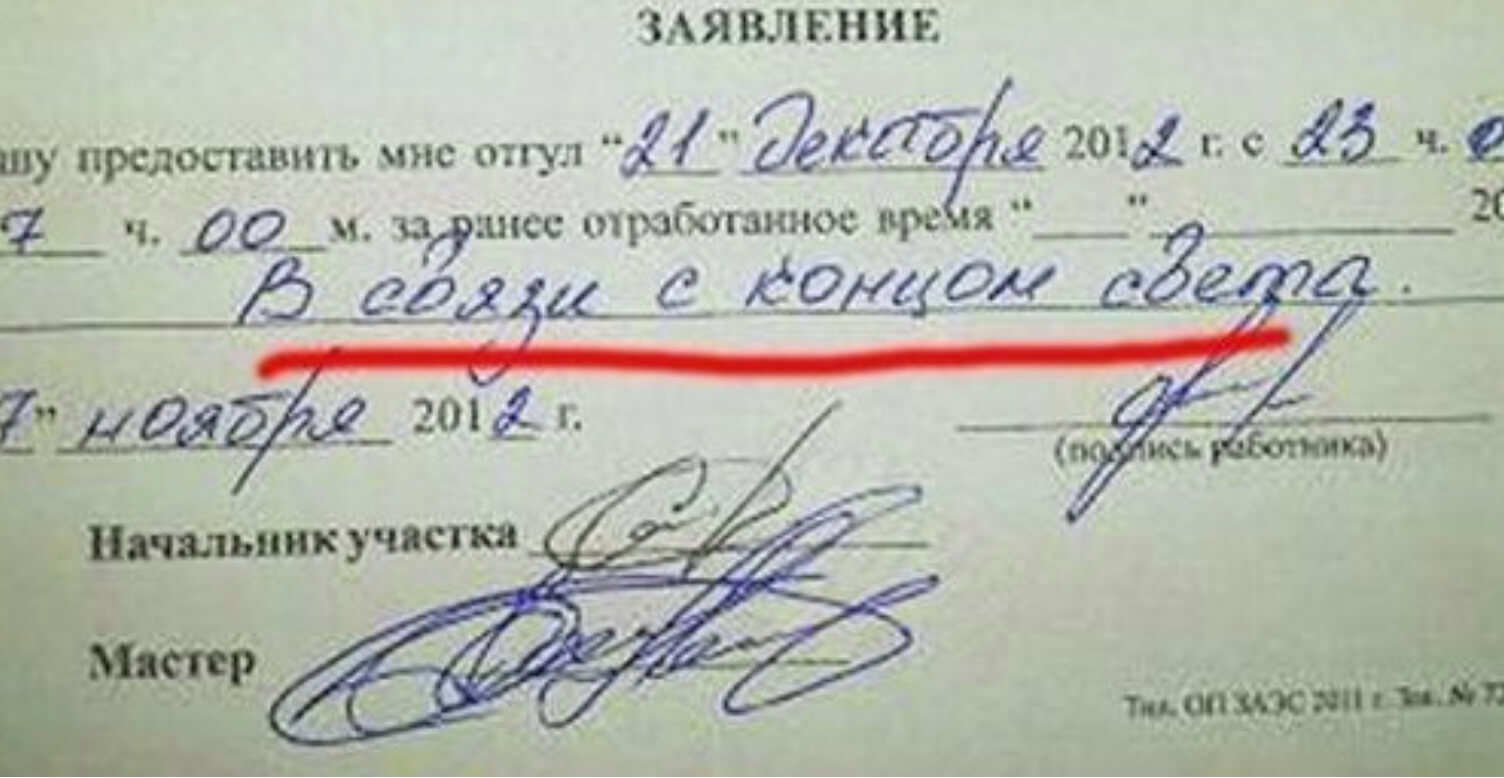 ЗАЯВЛЕНИЕ
шу предоставить мне отгул “21” Декабря 2012 г. с 23 ч. 0
7 ч. 00 м. за ранее отработанное время “ ” 20
В связи с концом света.
7” ноября 2012 г.
(подпись работника)
Начальник участка
Мастер
Тип. ОП ЗАЭС 2011 г. Зак. № 72